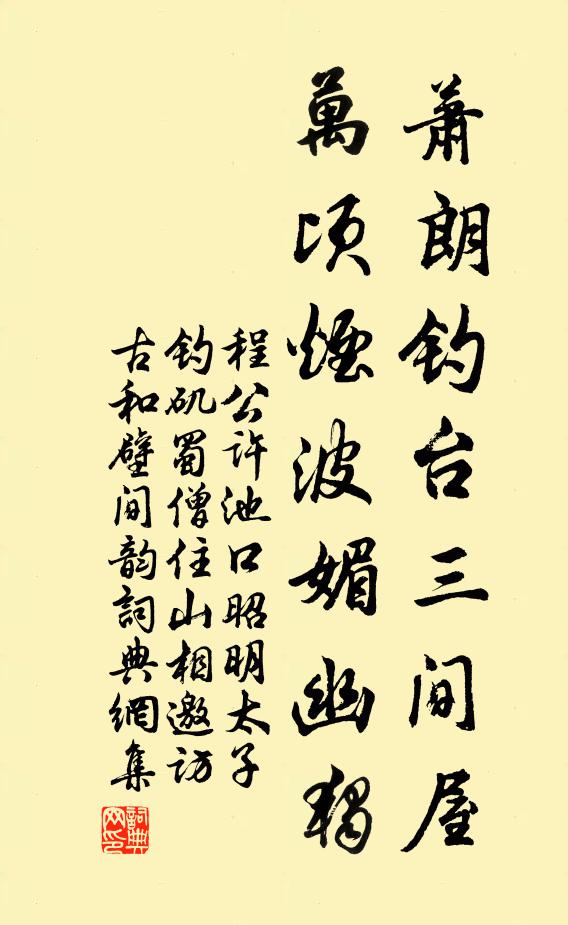 蕭朗钓台三间屋
萬顷煙波媚幽獨
程公许池口昭明太子
钓矶蜀僧住山相邀访
古和壁间韵詞典網集
詞典
网印